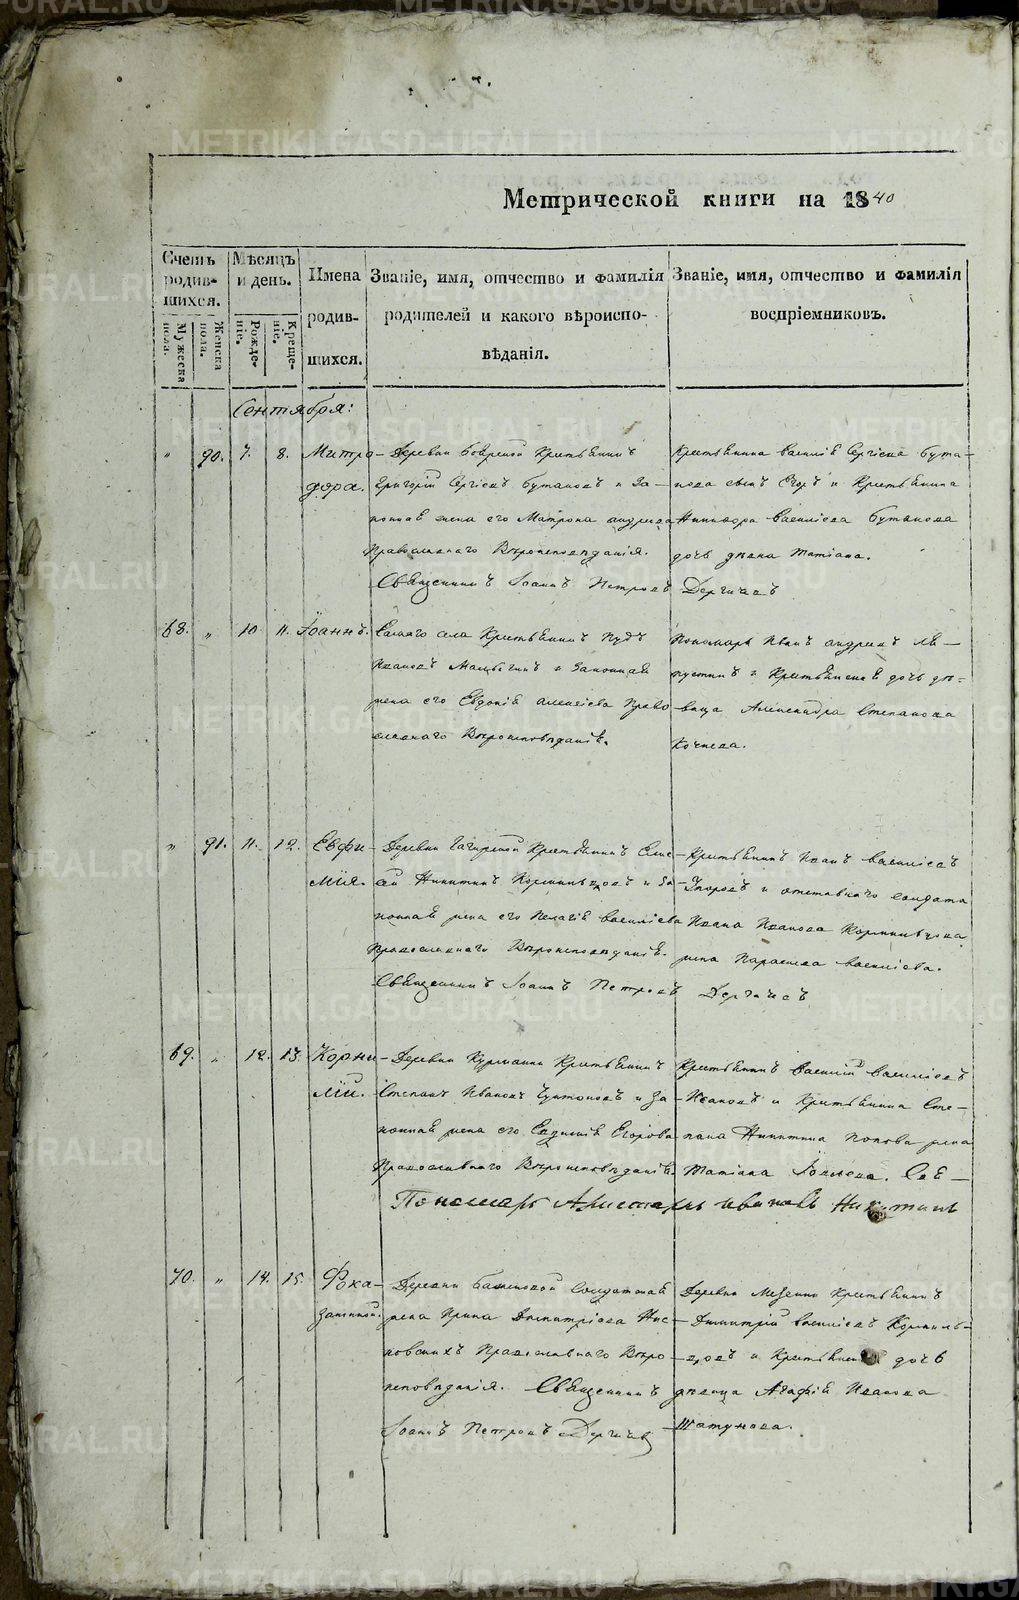 Метрической книги на 1840
Счетъ родив-шихся.
Мѣсяцъ и день.
Имена родив-шихся.
Званіе, имя, отчество и фамилія родителей и какого вѣроиспо-вѣданія.
Званіе, имя, отчество и фамилія воспріемниковъ.
Мужеска пола.
Женска пола.
Рожде-ніе.
Креще-ніе.
Сентября:
" 90. 7. 8. Митро-
дора.
Деревни Боярской Крестьянинъ
Григорій Сергіевъ Бутаковъ и За-
конная жена его Матрона
Православнаго Вѣроисповѣданія.
Священникъ Іоаннъ Петровъ Дергачевъ
Крестьянина Василія Сергіева Бута-
кова сынъ Егоръ и Крестьянина
Василіева Бутакова
дочь дѣвка Татіана.
68. " 10 11. Іоаннъ.
села Крестьянинъ
Ивановъ и Законная
жена его Евдокія Алексіева Право
славнаго Вѣроисповѣданія.
Пономарь Иванъ Андреевъ Ля-
пустинъ и Крестьянская дочь дѣ-
вица Александра Степанова
Кочнева.
" 91. 11. 12. Евфи-
мія.
Деревни Крестьянинъ Елис
ей Никитинъ Кормильцовъ и За-
конная жена его Пелагія Василіева
Православнаго Вѣроисповѣданія.
Священникъ Іоаннъ Петровъ Дергачевъ
Крестьянинъ Иванъ Василіевъ
и отставнаго солдата
Ивана Иванова Кормильцова
жена Параскева Василіева.
69. " 12. 13. Корни
лій.
Деревни Курманки Крестьянинъ
Степанъ Ивановъ и За-
конная жена его Егорова
Православнаго Вѣроисповѣданія
Крестьянинъ Василій Василіевъ
Ивановъ и Крестьянина Сте-
пана Никитина Попова жена
Татіана
Пономарь Ивановъ Никитинъ
70. " 14. 15. Фока
Законный
Деревни Баженовой Солдатская
жена Ирина Димитріева
Православнаго Вѣро
исповѣданія. Священникъ
Іоаннъ Петровъ Дергачев
Деревни Мезенки Крестьянинъ
Димитрій Василіевъ Кормиль-
цовъ и Крестьянская дочь
дѣвица Агафія Иванова
Шатунова.